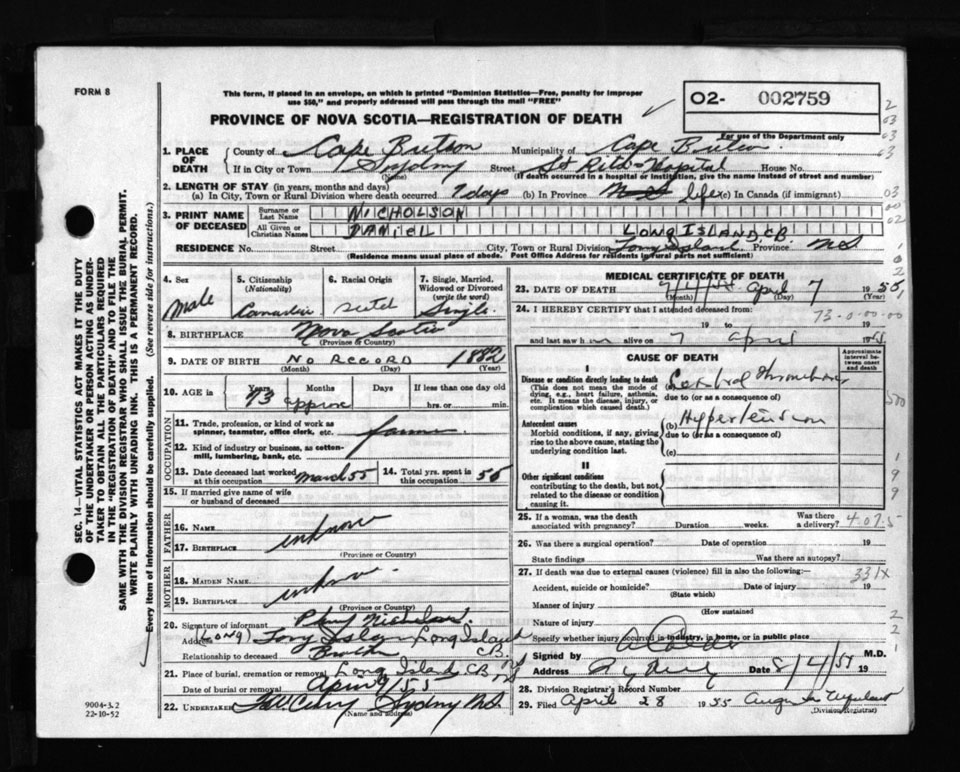 FORM 8
This form, if placed in an envelope, on which is printed "Dominion Statistics—Free, penalty for improper
use $50," and properly addressed will pass through the mail "FREE"
O2- 002759
For use of the Department only
PROVINCE OF NOVA SCOTIA—REGISTRATION OF DEATH
1. PLACE OF DEATH County of Cape Breton Municipality of Cape Breton
If in City or Town Sydney (Name) Street St Rita Hospital House No.
(If death occurred in a hospital or institution, give the name instead of street and number)
2. LENGTH OF STAY (in years, months and days)
(a) In City, Town or Rural Division where death occurred 7 days (b) In Province life (c) In Canada (if immigrant)
3. PRINT NAME OF DECEASED Surname or Last Name NICHOLSON
All Given or Christian Names DANIEL LONG ISLAND, CB
RESIDENCE No. Street City, Town or Rural Division Long Island Province NS
(Residence means usual place of abode. Post Office Address for residents in rural parts not sufficient)
4. Sex Male
5. Citizenship (Nationality) Canadian
6. Racial Origin
7. Single, Married, Widowed or Divorced (write the word) Single
8. BIRTHPLACE Nova Scotia
(Province or Country)
9. DATE OF BIRTH NO RECORD 1882
(Month) (Day) (Year)
10. AGE in Years 73 Months Days If less than one day old
approx hrs. or min.
OCCUPATION
11. Trade, profession, or kind of work as spinner, teamster, office clerk, etc. farmer
12. Kind of industry or business, as cotton-mill, lumbering, bank, etc.
13. Date deceased last worked at this occupation March 55 14. Total yrs. spent in this occupation 55
15. If married give name of wife or husband of deceased
FATHER
16. NAME unknown
17. BIRTHPLACE
(Province or Country)
MOTHER
18. MAIDEN NAME unknown
19. BIRTHPLACE
(Province or Country)
20. Signature of informant Nicholson
Address (LONG) Long Island Long Island CB. NS
Relationship to deceased Brother
21. Place of burial, cremation or removal Long Island CB NS
Date of burial or removal April 9/55
22. UNDERTAKER Sydney NS.
(Name and address)
MEDICAL CERTIFICATE OF DEATH
23. DATE OF DEATH April 7 1955
(Month) (Day) (Year)
24. I HEREBY CERTIFY that I attended deceased from:
73-0-00-00
19 to 19
and last saw him alive on 7 April 1955
CAUSE OF DEATH
Approximate interval between onset and death
I
Disease or condition directly leading to death
(This does not mean the mode of dying, e.g., heart failure, asthenia, etc. It means the disease, injury, or complication which caused death.)
Cerebral thrombosis
due to (or as a consequence of)
Antecedent causes
Morbid conditions, if any, giving rise to the above cause, stating the underlying condition last.
(b) Hypertension
due to (or as a consequence of)
(c)
II
Other significant conditions
contributing to the death, but not related to the disease or condition causing it.
25. If a woman, was the death associated with pregnancy? Duration weeks. Was there a delivery? 4-07-5
26. Was there a surgical operation? Date of operation 19
State findings Was there an autopsy?
27. If death was due to external causes (violence) fill in also the following:— 331X
Accident, suicide or homicide? Date of injury 19
(State which)
Manner of injury
(How sustained)
Nature of injury
Specify whether injury occurred in industry, in home, or in public place
Signed by M.D.
Address Sydney Date 8/4/5 19
28. Division Registrar's Record Number
29. Filed April 28 1955
(Division Registrar)
SEC. 14—VITAL STATISTICS ACT MAKES IT THE DUTY
OF THE UNDERTAKER OR PERSON ACTING AS UNDER-
TAKER TO OBTAIN ALL THE PARTICULARS REQUIRED
IN THE "REGISTRATION OF DEATH" AND TO FILE THE
SAME WITH THE DIVISION REGISTRAR WHO SHALL ISSUE THE BURIAL PERMIT.
WRITE PLAINLY WITH UNFADING INK. THIS IS A PERMANENT RECORD.
Every item of information should be carefully supplied. (See reverse side for instructions.)
9004-3.2
22-10-52